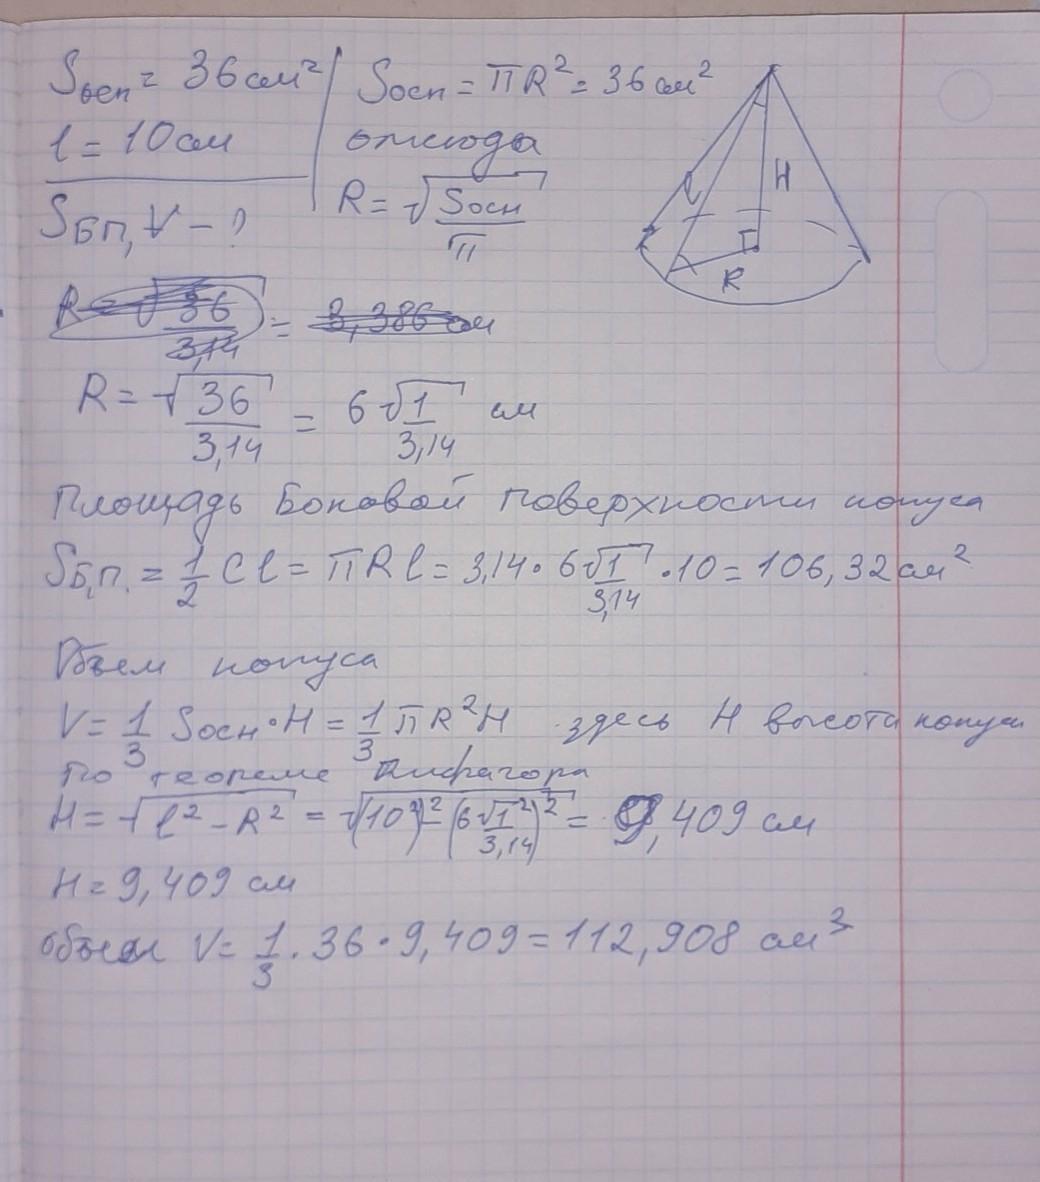 Sосн = 36 см²
l = 10 см
Sбп, V - ?
Sосн = πR² = 36 см²
отсюда
R = √(Sосн/π)
l
H
R
R = √(36/3,14) = 3,386 см
R = √(36/3,14) = 6√(1/3,14) см
Площадь боковой поверхности конуса
Sб.п. = 1/2 Cl = πRl = 3,14 · 6√(1/3,14) · 10 = 106,32 см²
Объем конуса
V = 1/3 Sосн · H = 1/3 πR²H здесь H высота конуса
по теореме Пифагора
H = √(l² - R²) = √((10)² - (6√(1²/3,14))²) = 9,409 см
H = 9,409 см
объем V = 1/3 · 36 · 9,409 = 112,908 см³